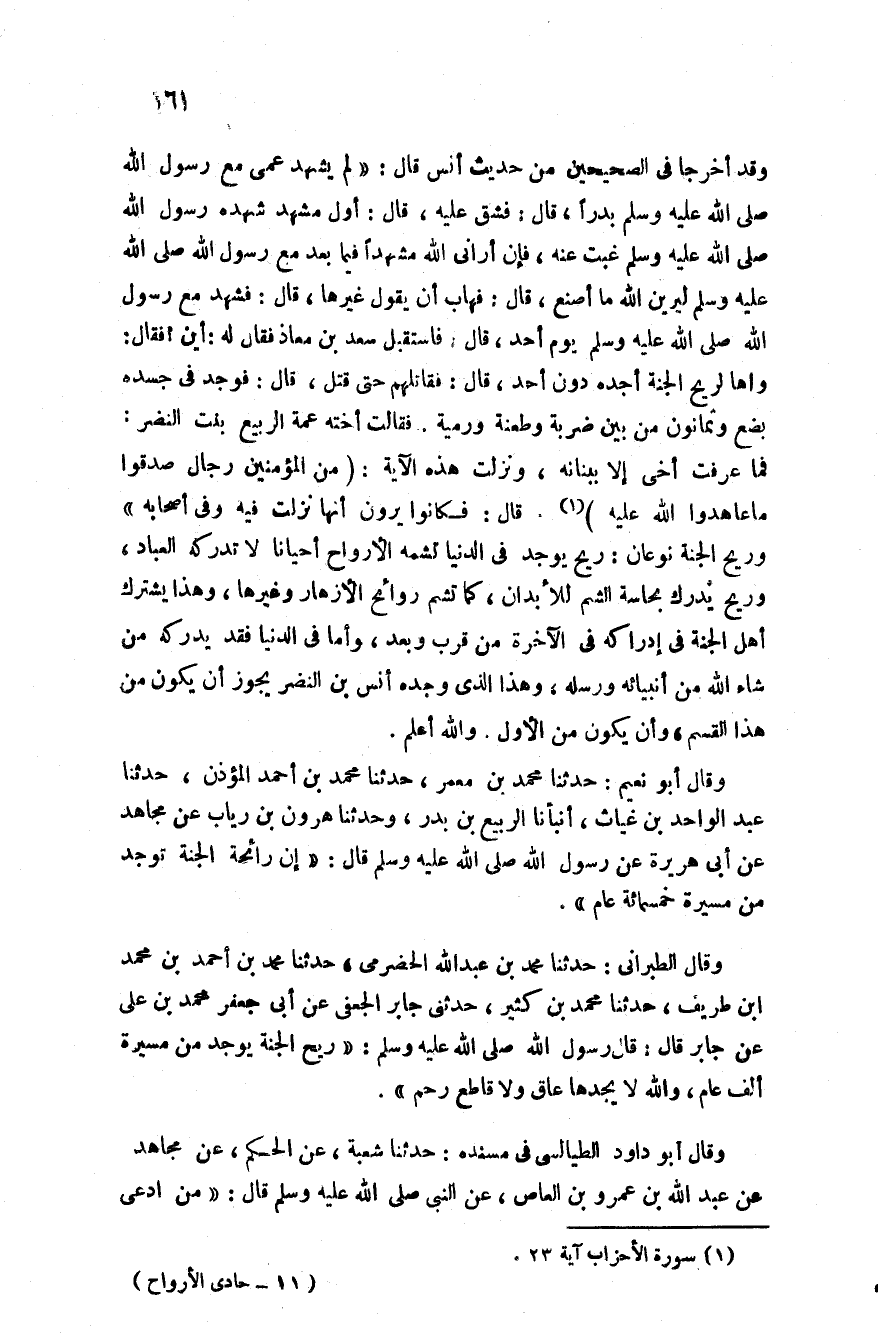 ١٦١
وقد أخرجا فى الصحيحين من حديث أنس قال : « لم يشهد عمى مع رسول الله
صلى الله عليه وسلم بدراً ، قال : فشق عليه ، قال : أول مشهد شهده رسول الله
صلى الله عليه وسلم غبت عنه ، فإن أرانى الله مشهداً فيما بعد مع رسول الله صلى الله
عليه وسلم ليرين الله ما أصنع ، قال : فهاب أن يقول غيرها ، قال : فشهد مع رسول
الله صلى الله عليه وسلم يوم أحد ، قال : فاستقبل سعد بن معاذ فقال له : أين ؟ فقال:
واها لريح الجنة أجده دون أحد ، قال : فقاتلهم حتى قتل ، قال : فوجد فى جسده
بضع وثمانون من بين ضربة وطعنة ورمية . فقالت أخته عمة الربيع بنت النضر :
فما عرفت أخى إلا ببنانه ، ونزلت هذه الآية : ( من المؤمنين رجال صدقوا
ماعاهدوا الله عليه )(١) . قال : فـكانوا يرون أنها نزلت فيه وفى أصحابه »
وريح الجنة نوعان : ريح يوجد فى الدنيا تشمه الأرواح أحيانا لا تدركه العباد ،
وريح يُدرك بحاسة الشم للأبدان ، كما تشم روائح الأزهار وغيرها ، وهذا يشترك
أهل الجنة فى إدراكه فى الآخرة من قرب وبعد ، وأما فى الدنيا فقد يدركه من
شاء الله من أنبيائه ورسله ، وهذا الذى وجده أنس بن النضر يجوز أن يكون من
هذا القسم ، وأن يكون من الأول . والله أعلم .
وقال أبو نعيم : حدثنا محمد بن معمر ، حدثنا محمد بن أحمد المؤذن ، حدثنا
عبد الواحد بن غياث ، أنبأنا الربيع بن بدر ، وحدثنا هرون بن رياب عن مجاهد
عن أبى هريرة عن رسول الله صلى الله عليه وسلم قال : « إن رائحة الجنة توجد
من مسيرة خمسمائة عام » .
وقال الطبرانى : حدثنا محمد بن عبدالله الحضرمى ، حدثنا محمد بن أحمد بن محمد
ابن طريف ، حدثنا محمد بن كثير ، حدثنى جابر الجعفى عن أبى جعفر محمد بن على
عن جابر قال : قال رسول الله صلى الله عليه وسلم : « ريح الجنة يوجد من مسيرة
ألف عام ، والله لا يجدها عاق ولا قاطع رحم » .
وقال أبو داود الطيالسى فى مسنده : حدثنا شعبة ، عن الحـكم ، عن مجاهد
عن عبد الله بن عمرو بن العاص ، عن النبى صلى الله عليه وسلم قال : « من ادعى
(١) سورة الأحزاب آية ٢٣ .
( ١١ ــ حادى الأرواح )